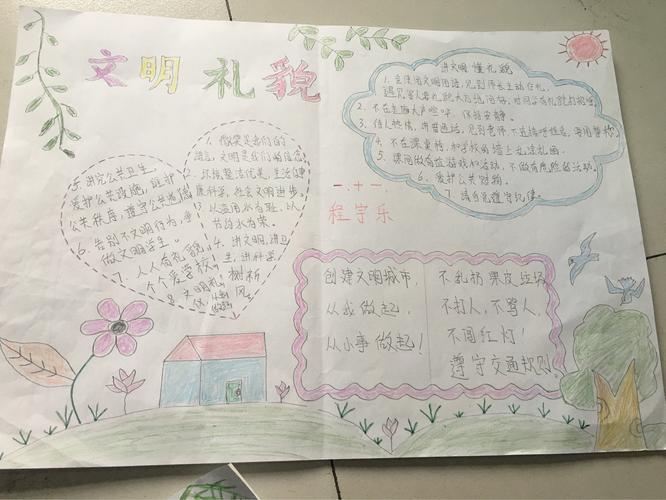 文明礼貌
讲文明 懂礼貌
1. 会使用文明用语,见到师长主动行礼,
遇见客人要礼貌大方地问好,对同学有礼貌的招呼
2. 不在走廊大声喧哗,保持安静。
3. 待人热情,讲普通话,见到老师
4. 不在课桌椅,和学校的墙上乱涂乱画。
5. 课间做有益游戏和活动,不做有危险的活动。
6. 爱护公共财物。
7. 请自觉遵守纪律
1. 微笑是我们的
语言,文明是我们的信念。
2. 环境整洁优美,生活健
康科学,社会文明进步。
3. 以
4. 讲文明,讲卫
生,讲科学,
树新
风。
5. 讲究公共卫生,
爱护公共设施,维护
公共秩序,遵守公共道德
6. 告别不文明行为,争
做文明学生。
7. 人人有礼貌,
个个爱学校。
8. 文明礼
一.十一
程宇乐
创建文明城市,
从我做起,
从小事做起!
不乱扔果皮垃圾
不打人,不骂人,
不闯红灯!
遵守交通规则。